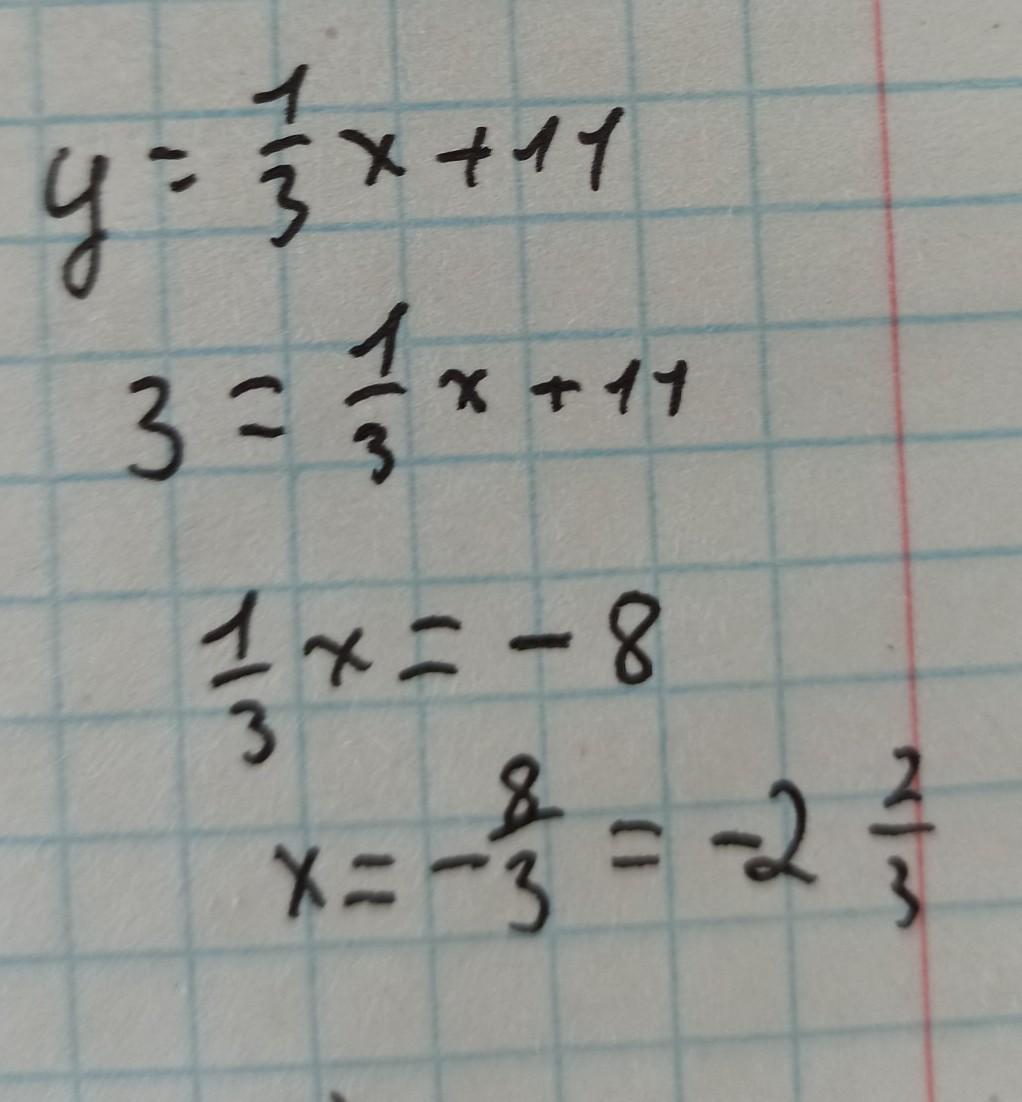 y = 1/3 x + 11
3 = 1/3 x + 11
1/3 x = - 8
x = - 8/3 = -2 2/3